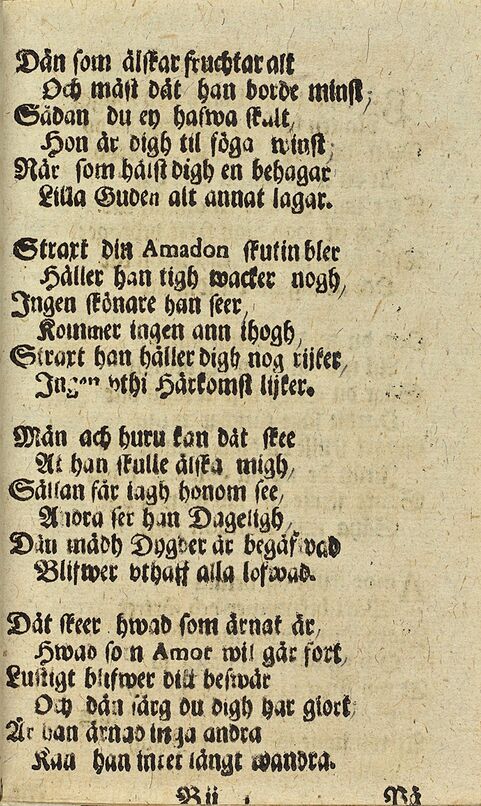 Dän som älskar fruchtar alt
Och mäst dät han borde minst,
Sådan du ey hafwa skalt,
Hon är digh til föga winst,
När som hälst digh en behagar
Lilla Guden alt annat lagar.
Straxt din Amadon skutin bler
Håller han tigh wacker nogh,
Ingen skönare han seer,
Kommer ingen ann ihogh,
Straxt han håller digh nog rijker,
Ingen vthi Härkomst lijker.
Män ach huru kan dät skee
At han skulle älska migh,
Sällan får iagh honom see,
Andra ser han Dageligh,
Dän mädh Dygder är begåfwad
Blifwer vthaff alla lofwad.
Dät skeer hwad som ärnat är,
Hwad som Amor wil går fort,
Lustigt blifwer ditt beswär
Och dän särg du digh har giort,
Är han ärnad inga andra
Kan han intet långt wandra.
Bij På